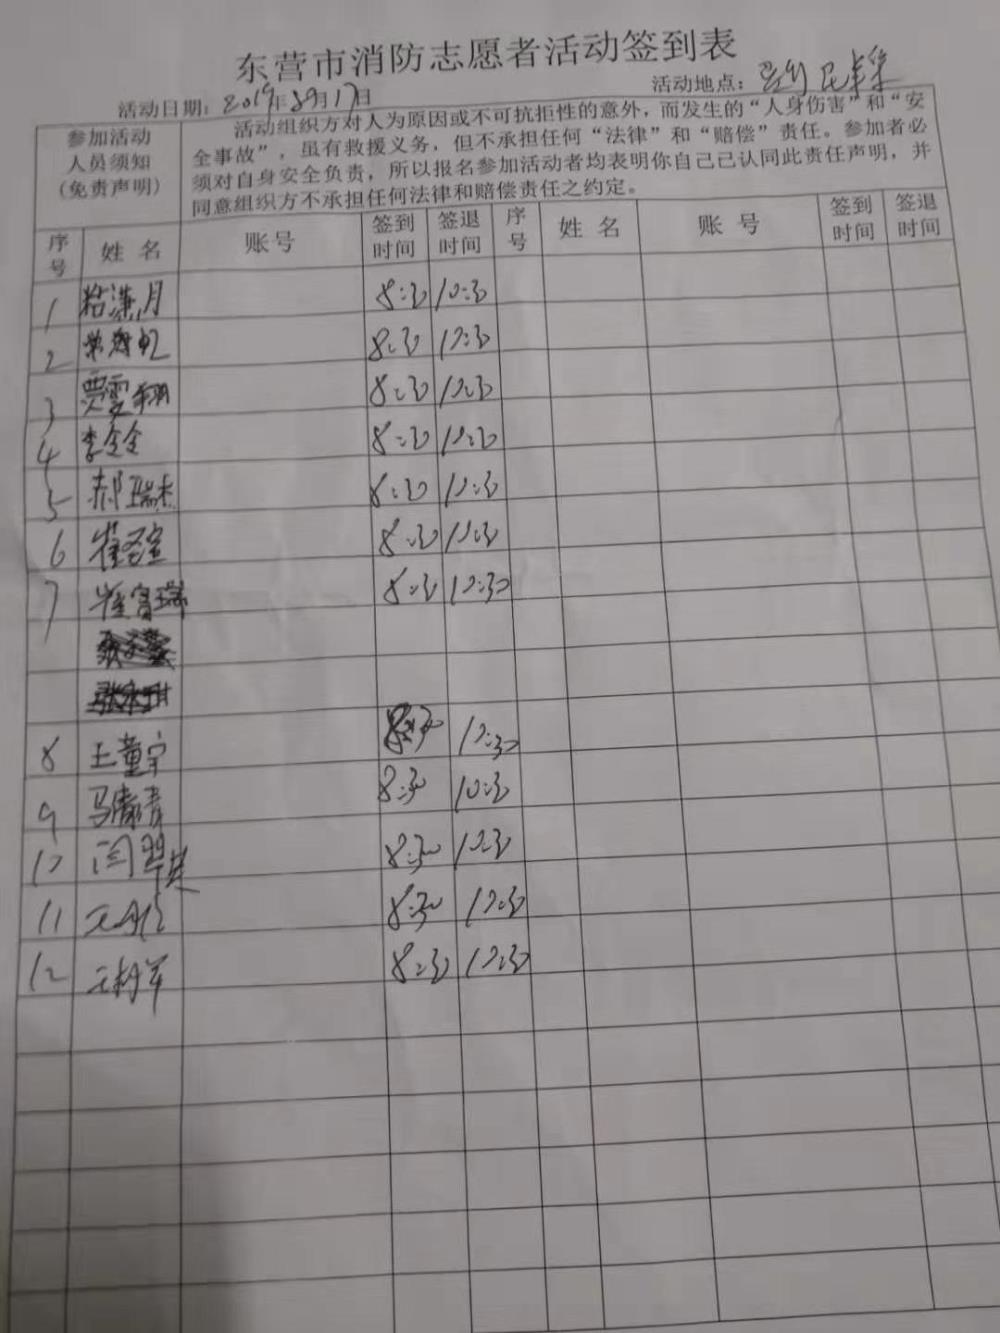 东营市消防志愿者活动签到表
活动日期：2019年8月17日 活动地点：
参加活动
人员须知
（免责声明）
活动组织方对人为原因或不可抗拒性的意外，而发生的“人身伤害”和“安
全事故”，虽有救援义务，但不承担任何“法律”和“赔偿”责任。参加者必
须对自身安全负责，所以报名参加活动者均表明你自己己认同此责任声明，并
同意组织方不承担任何法律和赔偿责任之约定。
序号 姓名 账号 签到时间 签退时间 序号 姓名 账号 签到时间 签退时间
1 8:30 10:30
2 8:30 10:30
3 贾雯翔 8:30 10:30
4 李全全 8:30 10:30
5 郝瑞杰 8:30 10:30
6 8:30 10:30
7 8:30 10:30
8 王童宇 8:30 10:30
9 马肃青 8:30 10:30
10 8:30 10:30
11 8:30 10:30
12 8:30 10:30